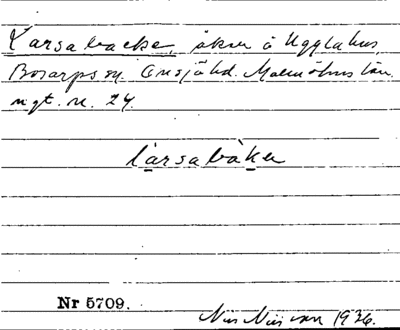 Larsabacke, åker å Ugglahus,
Bosarps sn. Onsjö hd. Malmöhus län.
mgt. n. 24.
làrsabàkɐ
Nr 5709.
Nils Nilsson 1936.